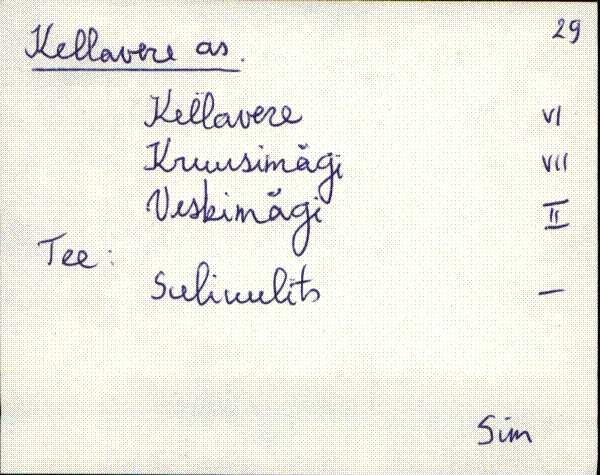 29
Kellavere as.
Kellavere VI
Kruusimägi VII
Veskimägi II
Tee:
Suliuulits —
Sim